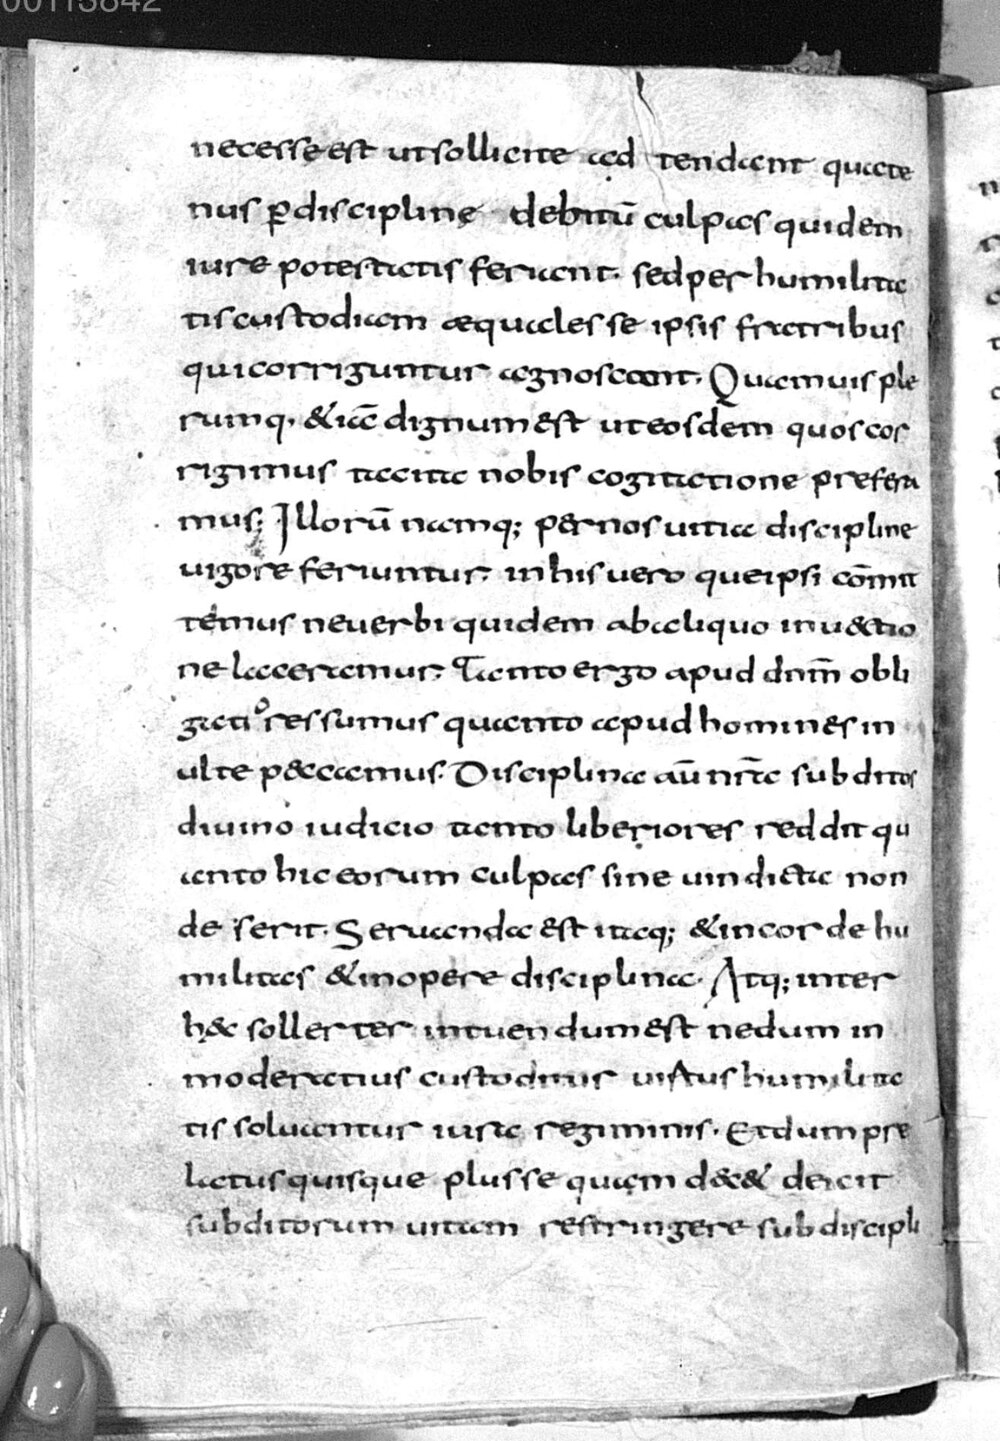 00113842
necesse est ut sollicite ad tendant quate
nus p̲ discipline debitū culpas quidem
iure potestatis feriant. sed per humilita
tis custodiam æquales se ipsis fratribus
qui corriguntur agnoscant. Quamuis ple
rumq. & iāc dignum est ut eosdem quos cor
rigimus tacita nobis cogitatione prefera
mus; Illorū namq; per nos uitia discipline
uigore feriuntur; in his uero que ipsi cōmit
temus ne uerbi quidem ab aliquo inuectio
ne laceramur; Tanto ergo apud dnm̄ obli
gatiores sumus quanto apud homines in
ulte peccamus. Disciplina aū nr̄a subditos
diuino iudicio tanto liberiores reddit qu
anto hic eorum culpas sine uindicta non
deserit. Seruanda est itaq; & in corde hu
militas & in opere disciplina. Atq; inter
hęc sollerter intuendum est ne dum in
moderatius custoditur uirtus humilita
tis soluantur iura regiminis. Et dum pre
latus quisque plus se quam decet deicit
subditorum uitam restringere sub discipli